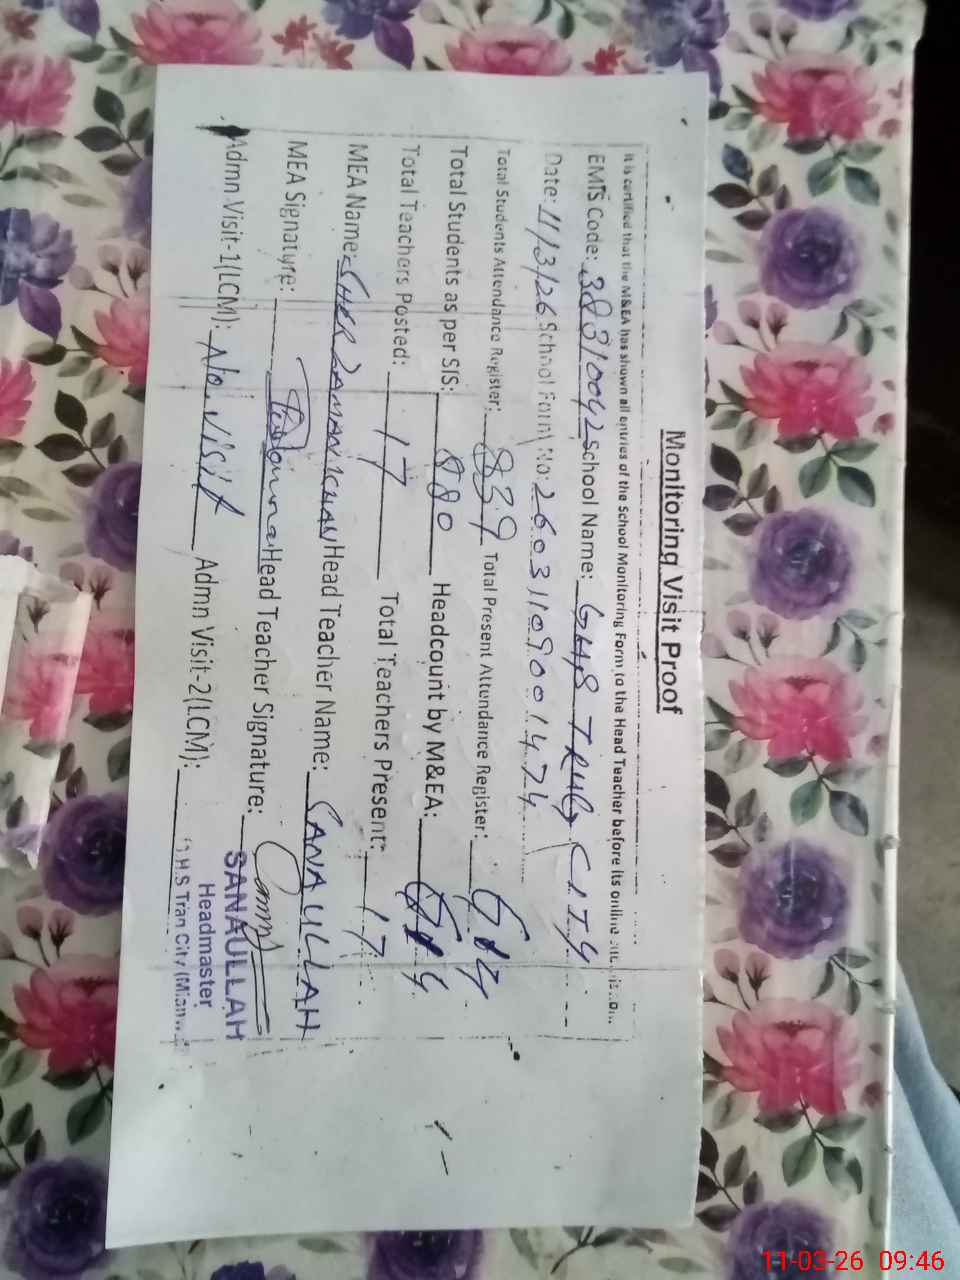 Monitoring Visit Proof
It is certified that the M&EA has shown all entries of the School Monitoring Form to the Head Teacher before its online
EMIS Code: 38310042 School Name: GHS TRUG CITY
Date: 11/3/26 School Form No: 260311090014724
Total Students Attendance Register: 839 Total Present Attendance Register: 614
Total Students as per SIS: 880 Headcount by M&EA: 614
Total Teachers Posted: 17 Total Teachers Present: 17
MEA Name: SHER ZAMAN KHAN Head Teacher Name: SANA ULLAH
MEA Signature: Head Teacher Signature:
Admn Visit-1(LCM): No. visit Admn Visit-2(LCM):
SANAULLAH
Headmaster
G.H.S Trag City
11-03-26 09:46